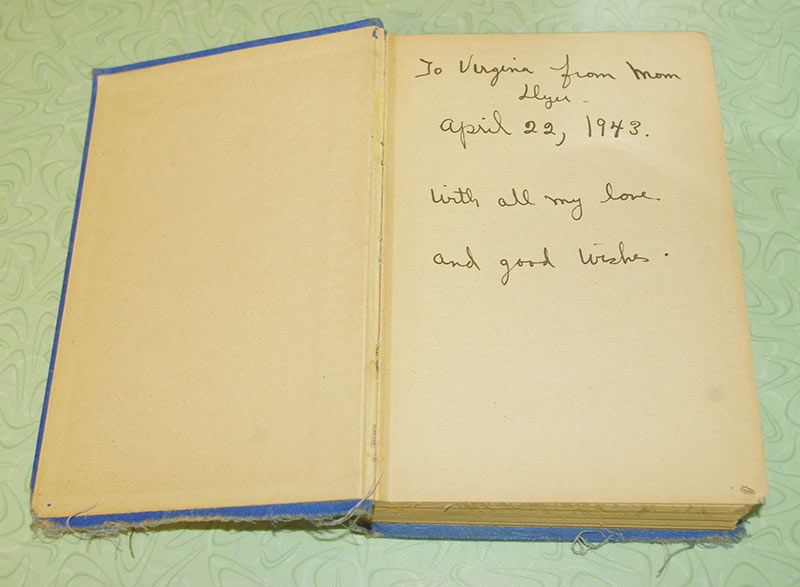 To Virginia from Mom
Dyer.
April 22, 1943.
With all my love.
and good wishes.